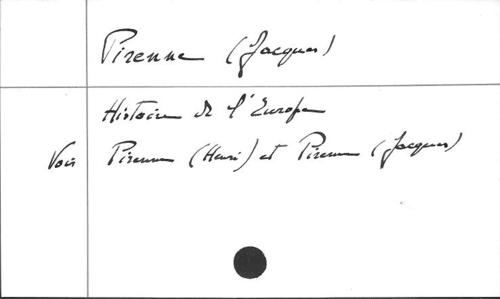 Pirenne (Jacques)
Histoire de l'Europe
Voir Pirenne (Henri) et Pirenne (Jacques)